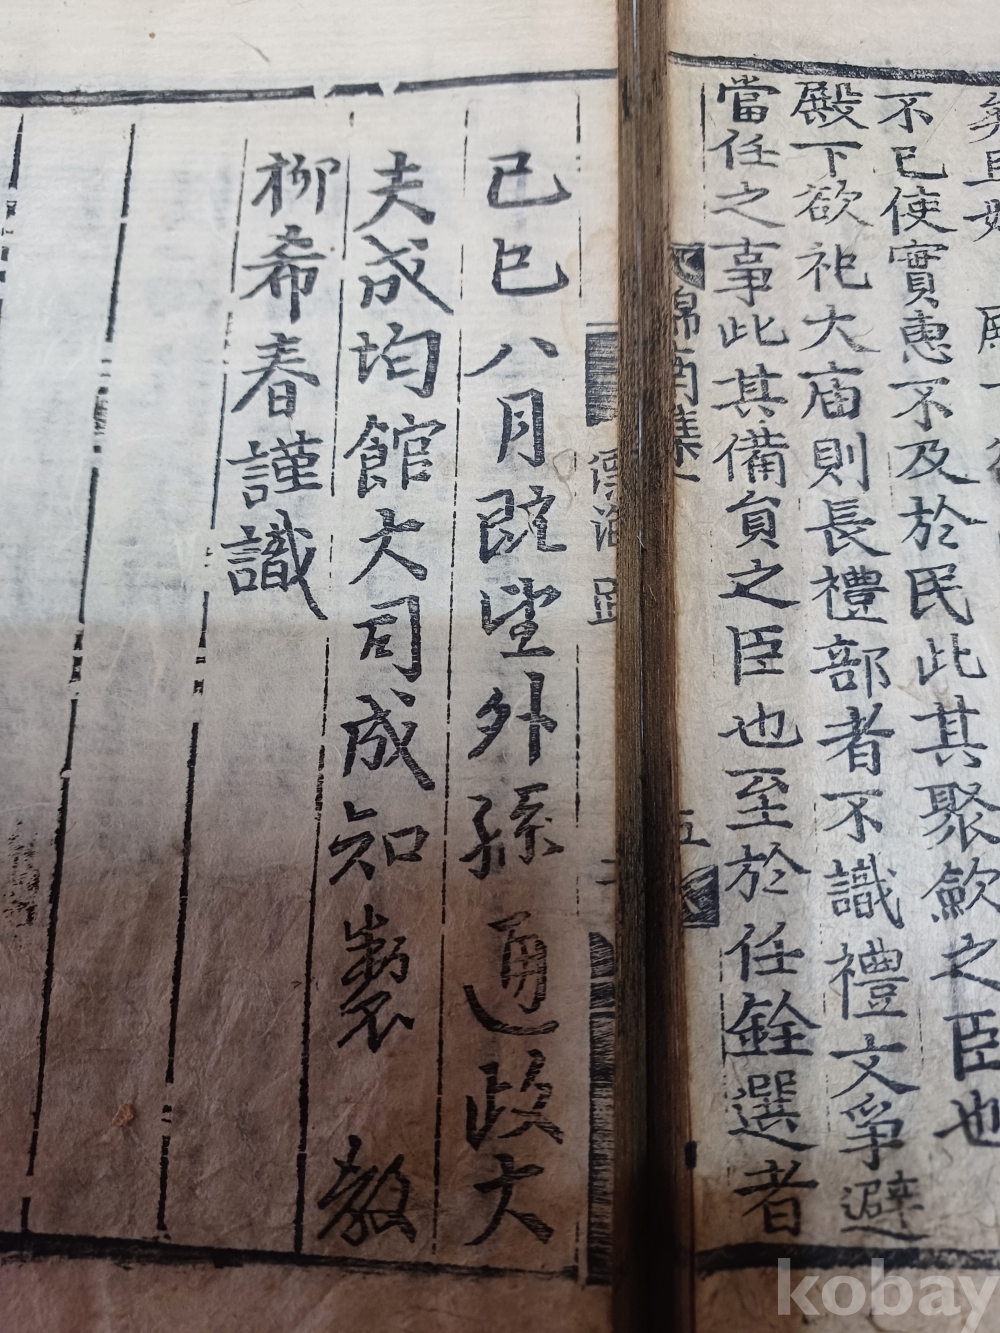 不已使實惠不及於民此其聚歛之臣也
殿下欲祀大庙則長禮部者不識禮文爭避
當任之事此其備貟之臣也至於任銓選者
錦南集
五
漂海 跋
二
己巳八月旣望外孫 通政大
夫成均館大司成知製 敎
柳希春謹識
kobay